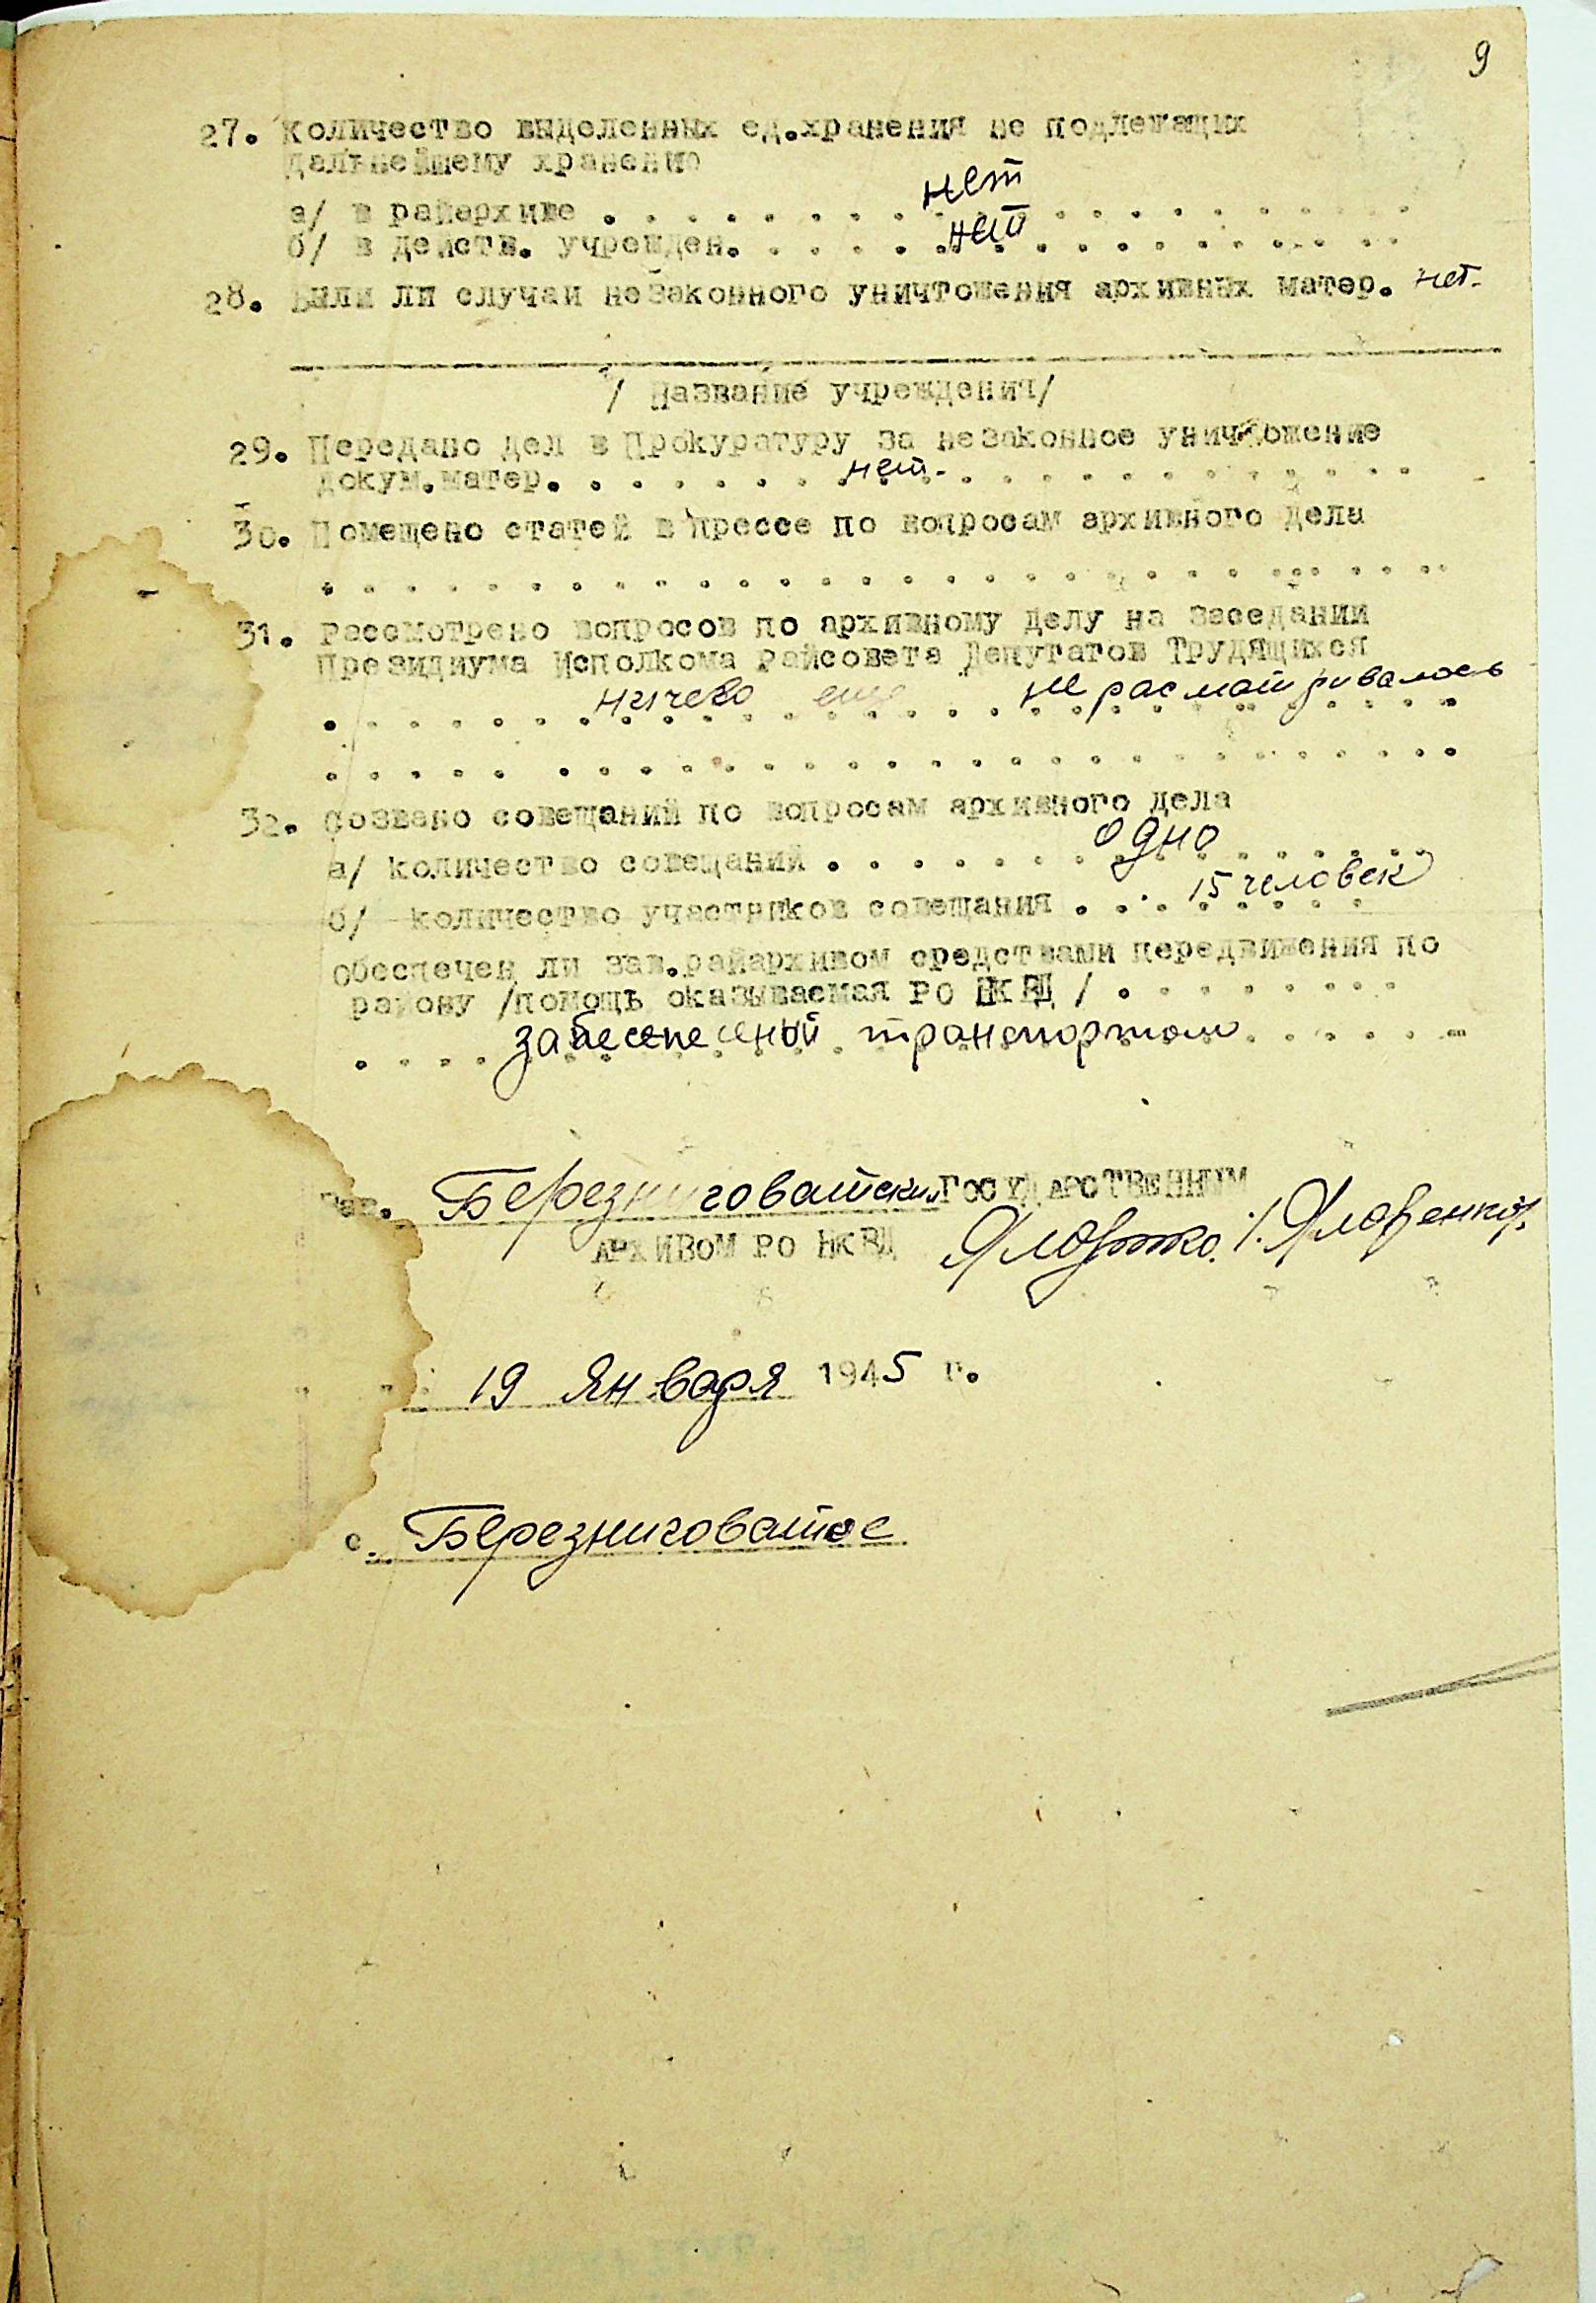 9
27. Количество выделенных ед.хранения не подлежащих
дальнейшему хранению
нет
а/ в райархиве . . . . . . . . . . . . . . . . . . . .
б/ в действ. учрежден. . . . . . нет . . . . . . . . .
28. Были ли случаи незаконного уничтожения архивных матер. нет-
/ Название учреждения/
29. Передано дел в Прокуратуру за незаконное уничтожение
докум.матер. . . . . . . . нет- . . . . . . . . . . . .
30. Помещено статей в прессе по вопросам архивного дела
. . . . . . . . . . . . . . . . . . . . . . . . . . . .
31. Рассмотрено вопросов по архивному делу на заседании
Президиума Исполкома Райсовета Депутатов Трудящихся
ничего еще не расматривалось
. . . . . . . . . . . . . . . . . . . . . . . . . . . .
32. Созвано совещаний по вопросам архивного дела
а/ количество совещаний . . . . . . . одно . . . . . .
б/ количество участников совещания . . . 15 человек
Обеспечен ли зав.райархивом средствами передвижения по
району /помощь оказываемая РО НКВД / . . . . . . . .
. . . . транспортом . . . . . .
Зав. Березниговатским ГОСУДАРСТВЕННЫМ
АРХИВОМ РО НКВД
19 Января 1945 г.
с. Березниговатое